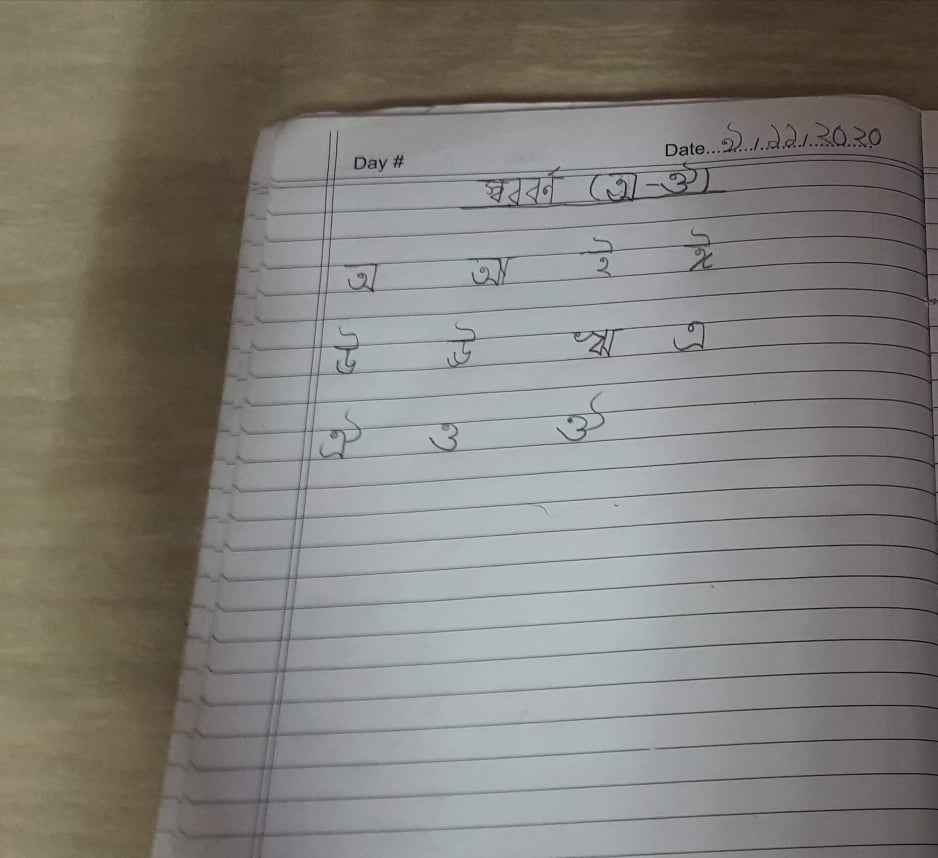 Day #
Date...৯/১১/২০২০
স্বরবর্ন (অ-ঔ)
অ আ ই ঈ
উ ঊ ঋ এ
ঐ ও ঔ